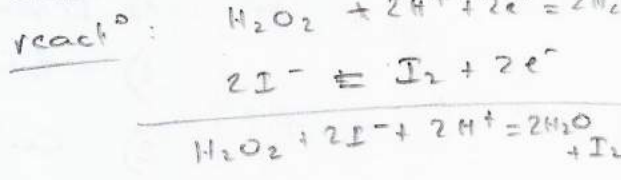 reactⁿ : H₂O₂ + 2H⁺ + 2e = 2H₂
2I⁻ = I₂ + 2e⁻
H₂O₂ + 2I⁻ + 2H⁺ = 2H₂O
+ I₂